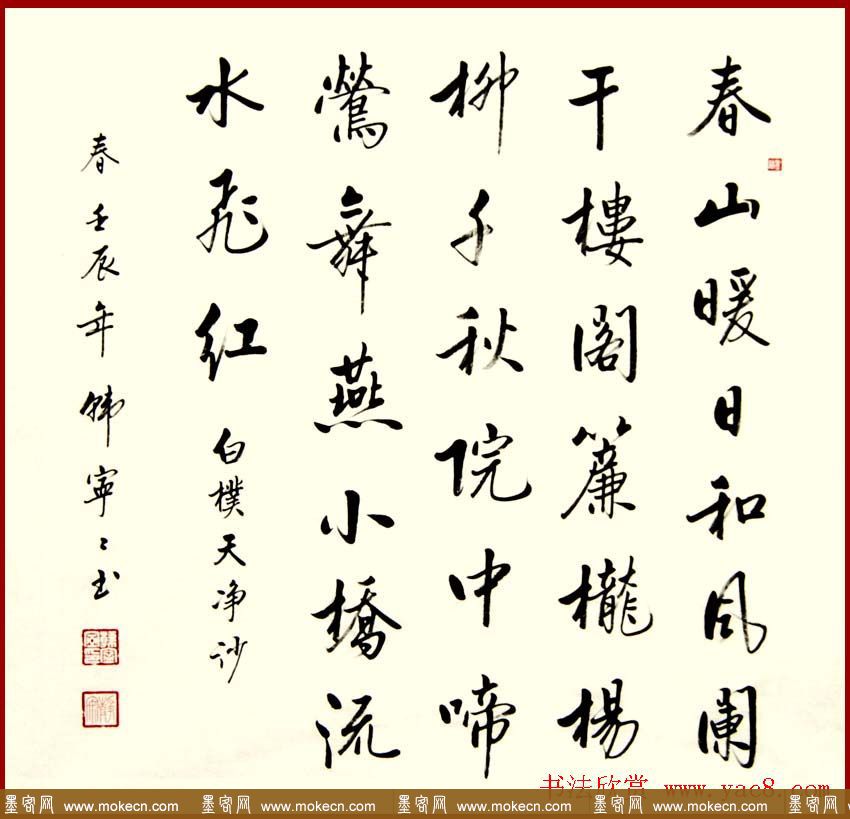 春山暖日和风阑
干樓閣簾櫳楊
柳千秋院中啼
鶯舞燕小橋流
水飛红
白樸天净沙
春壬辰年韩寧々书
书法欣赏 www.yac8.com
墨客网 www.mokecn.com 墨客网 www.mokecn.com 墨客网 www.mokecn.com 墨客网 www.mokecn.com